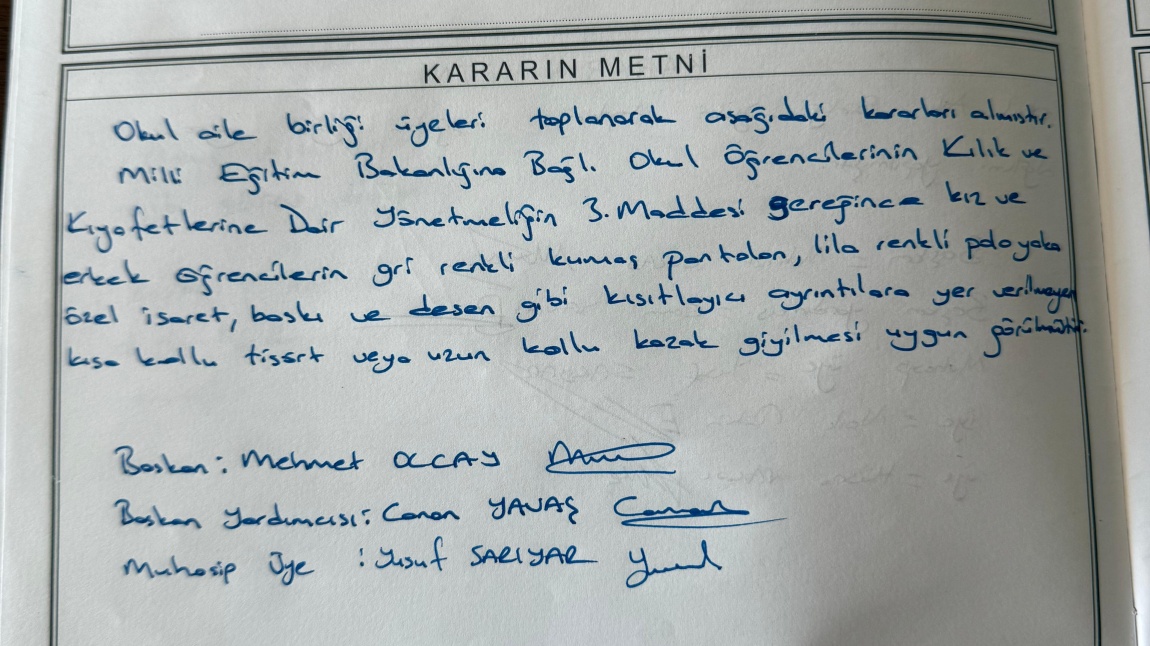 KARARIN METNİ
Okul aile birliği üyeleri toplanarak aşağıdaki kararları almıştır.
Milli Eğitim Bakanlığına Bağlı Okul Öğrencilerinin Kılık ve
Kıyafetlerine Dair Yönetmeliğin 3. Maddesi gereğince kız ve
erkek öğrencilerin gri renkli kumaş pantolon, lila renkli polo yaka
özel işaret, baskı ve desen gibi kısıtlayıcı ayrıntılara yer verilmeyen
kısa kollu tişört veya uzun kollu kazak giyilmesi uygun görülmüştür.
Başkan: Mehmet OLCAY
Başkan Yardımcısı: Canan YAVAŞ
Muhasip Üye : Yusuf SARIYAR